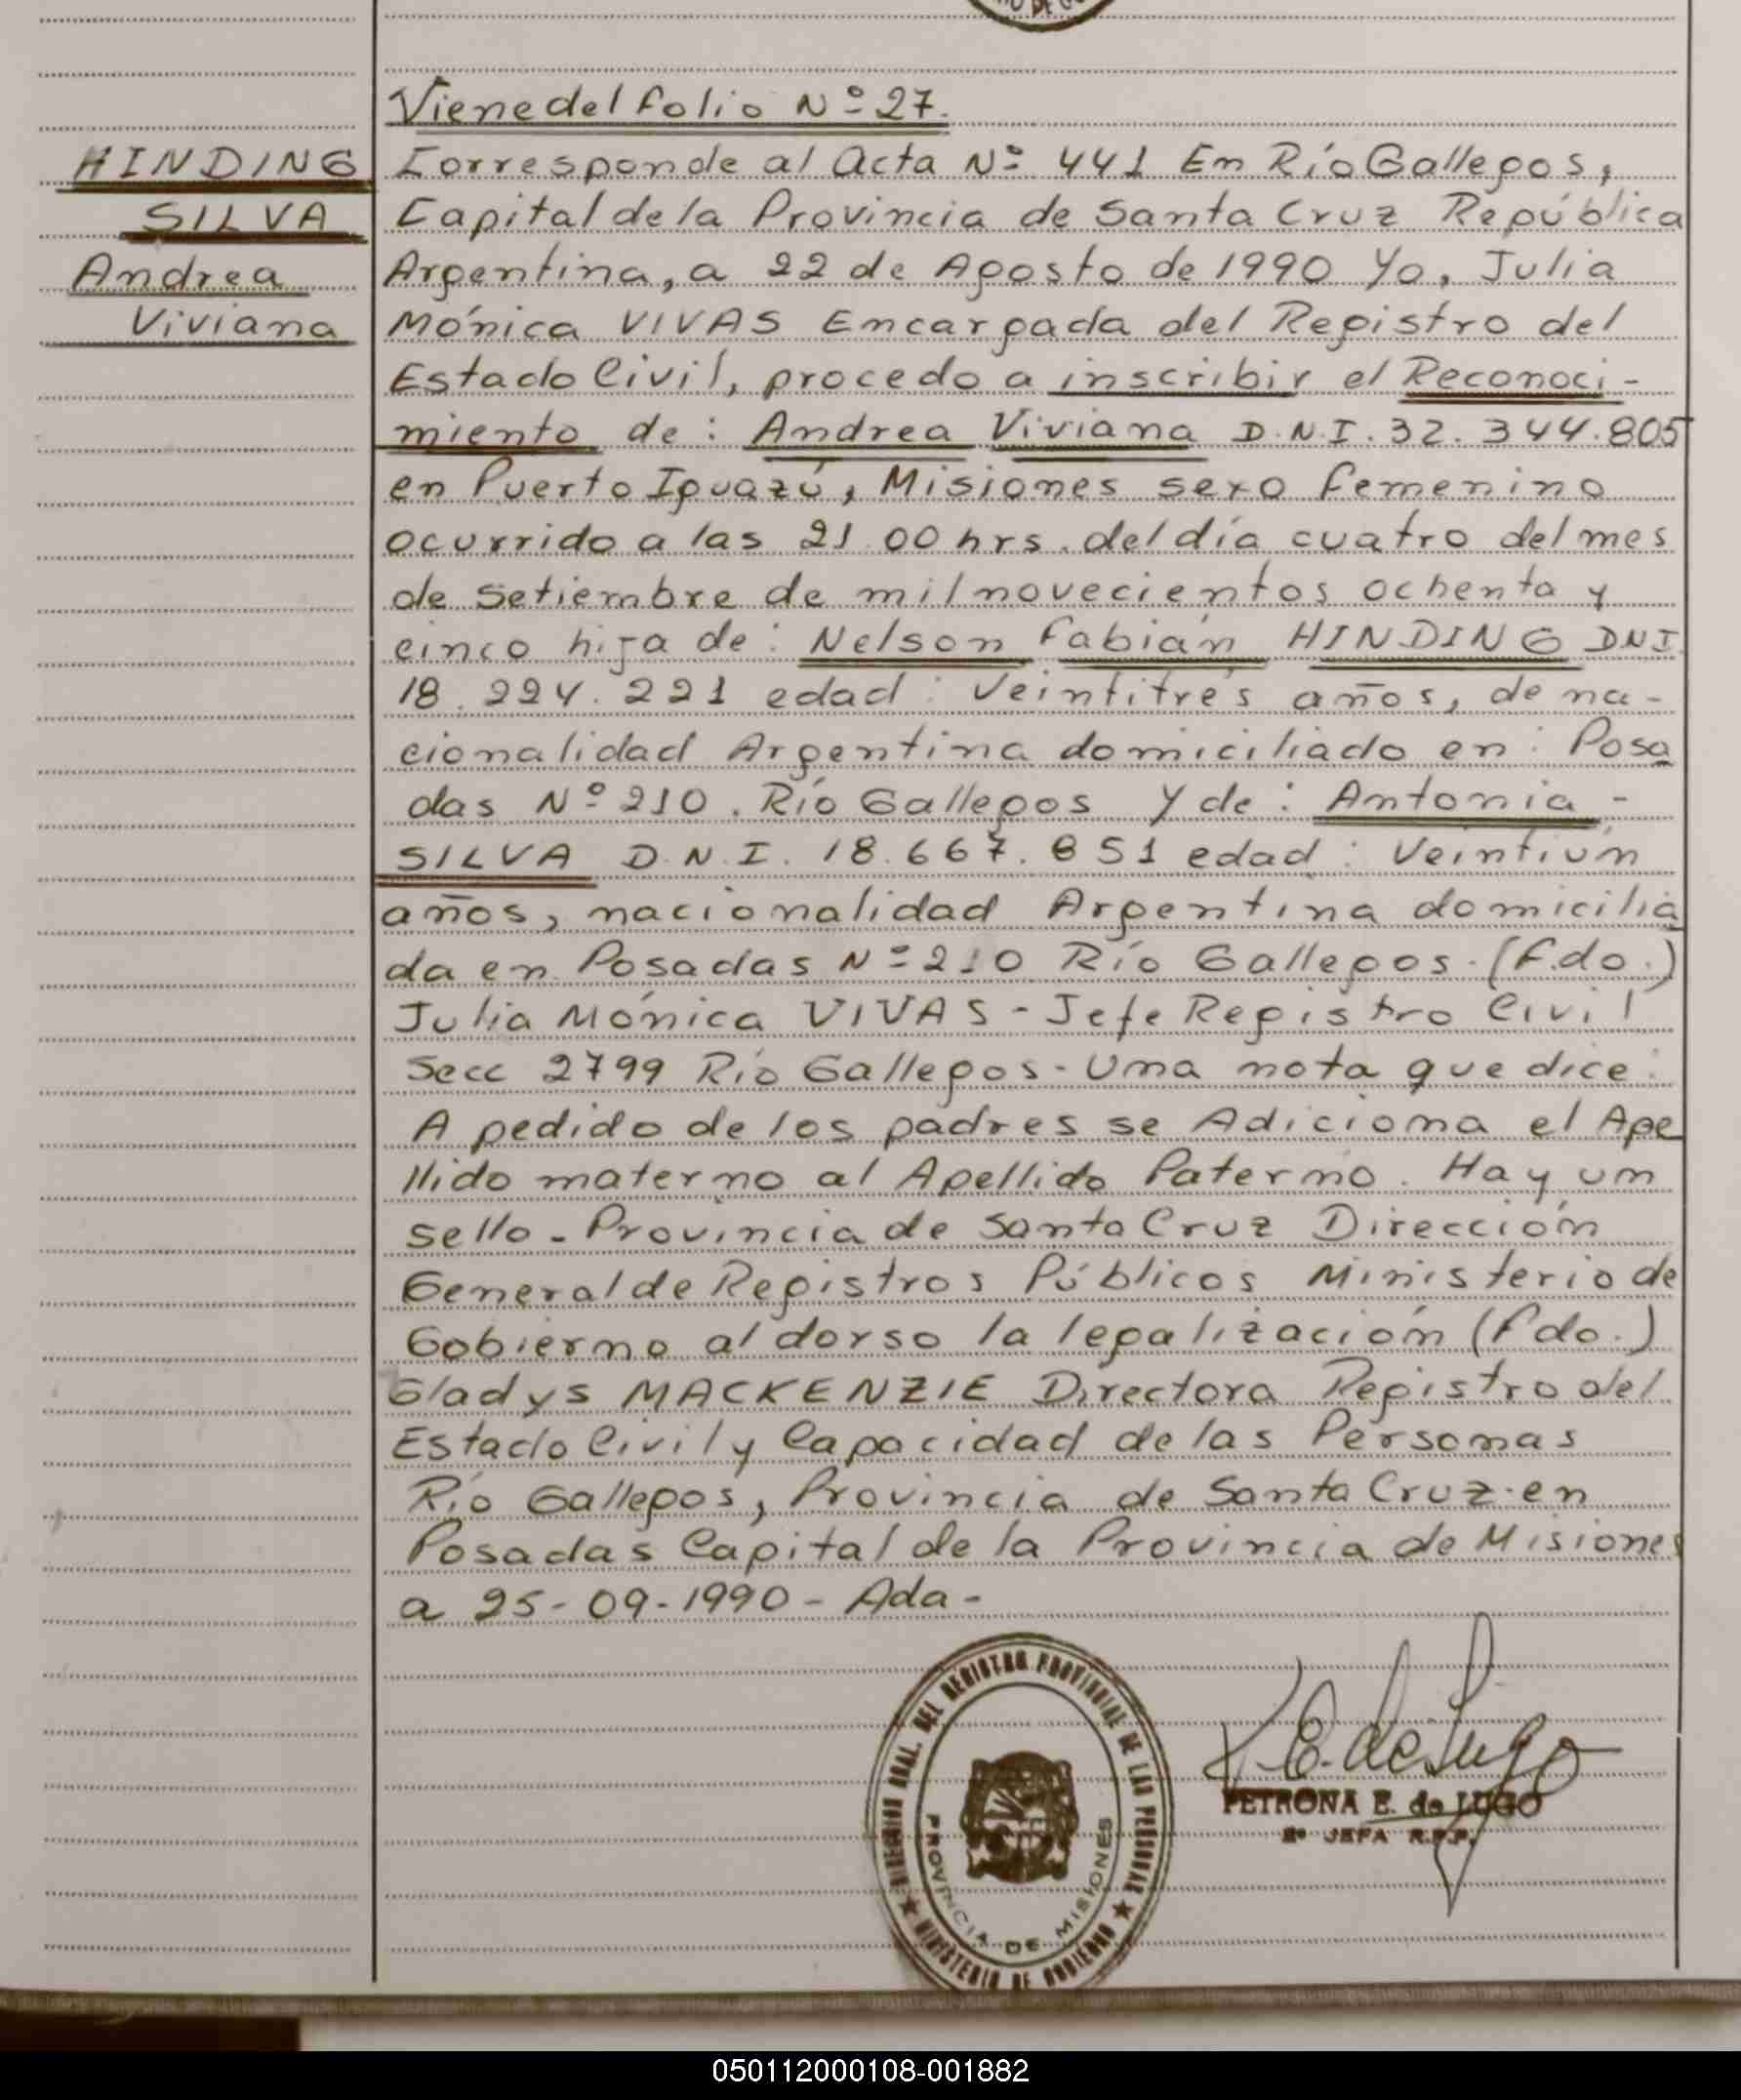 Viene del folio Nº 27.
HINDING
SILVA
Andrea
Viviana
Corresponde al Acta Nº 441 En Río Gallegos,
Capital de la Provincia de Santa Cruz República
Argentina, a 22 de Agosto de 1990 Yo, Julia
Mónica VIVAS Encargada del Registro del
Estado Civil, procedo a inscribir el Reconoci-
miento de: Andrea Viviana D.N.I. 32.344.805
en Puerto Iguazú, Misiones sexo femenino
ocurrido a las 21.00 hrs. del día cuatro del mes
de Setiembre de mil novecientos ochenta y
cinco hija de: Nelson Fabián HINDING DNI
18.224.221 edad: Veintitrés años, de na-
cionalidad Argentina domiciliado en: Posa
das Nº 210. Río Gallegos y de: Antonia -
SILVA D.N.I. 18.667.851 edad: Veintiún
años, nacionalidad Argentina domicilia
da en Posadas Nº 210 Río Gallegos. (F.do.)
Julia Mónica VIVAS - Jefe Registro Civil
Secc 2799 Río Gallegos - Una nota que dice:
A pedido de los padres se Adiciona el Ape
llido materno al Apellido Paterno. Hay un
sello - Provincia de Santa Cruz Dirección
General de Registros Públicos Ministerio de
Gobierno al dorso la legalización (Fdo.)
Gladys MACKENZIE Directora Registro del
Estado Civil y Capacidad de las Personas
Río Gallegos, Provincia de Santa Cruz. en
Posadas Capital de la Provincia de Misiones
a 25-09-1990 - Ada -
DIRECCION GRAL. DEL REGISTRO PROVINCIAL DE LAS PERSONAS
MINISTERIO DE GOBIERNO
PROVINCIA DE MISIONES
P.E. de Lugo
PETRONA E. de LUGO
2º JEFA R.P.P.
050112000108-001882